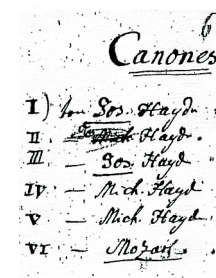 Canones
I) von Jos. Haydn
II Jos Haydn.
III — Jos. Haydn
IV — Mich. Haydn
V — Mich. Haydn
VI — Mozart.